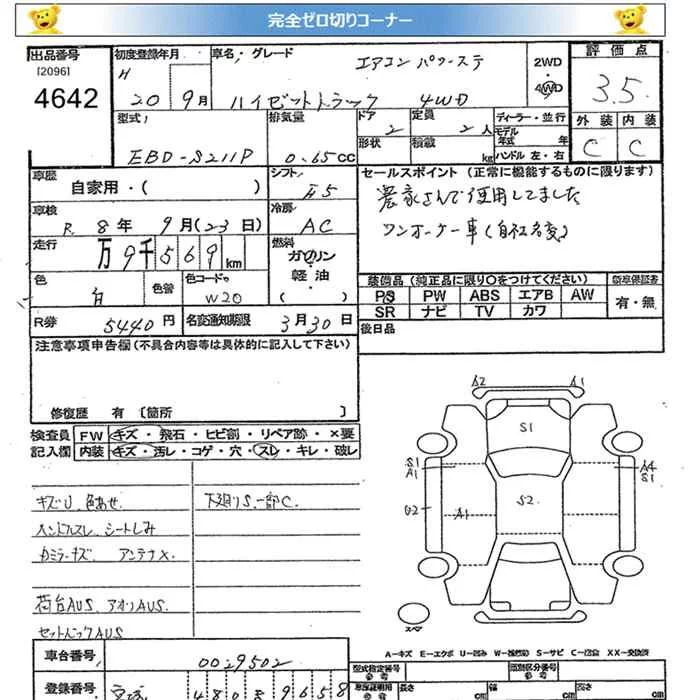 完全ゼロ切りコーナー
出品番号
[2096]
4642
初度登録年月
H
20 9月
車名・グレード
エアコン パワーステ
ハイゼットトラック 4WD
2WD
・
4WD
評価点
3.5
外装 内装
C C
型式
EBD-S211P
排気量
0.65cc
ドア 2
形状
定員 2人
積載 kg
ディーラー・並行
モデル年式 年
ハンドル 左・右
車歴
自家用・( )
シフト
F5
車検
R 8年 9月(23日)
冷房
AC
走行
万9千569km
燃料
ガソリン
軽油
( )
色
白
色替
色コードNo.
W20
R券 5440円
名変通知期限 3月30日
セールスポイント(正常に機能するものに限ります)
農家さんで使用してました
ワンオーナー車(自社名変)
装備品(純正品に限り○をつけてください)
PS PW ABS エアB AW
SR ナビ TV カワ
新車保証書
有・無
後日品
注意事項申告欄(不具合内容等は具体的に記入して下さい)
修復歴 有 [箇所 ]
検査員記入欄
FW キズ・飛石・ヒビ割・リペア跡・×要
内装 キズ・汚レ・コゲ・穴・スレ・キレ・破レ
キズU 色あせ 下廻りS 一部C
ハンドルスレ シートしみ
カミラーキズ アンテナX
荷台AUS アオリAUS
セットバックAUS
A2 A1
S1
S1
A1
A4
S1
S2
U2
A1
スペア
A-キズ E-エクボ U-凹み W-補修跡 S-サビ C-腐食 XX-交換済
車台番号
0029502
登録番号
480 を 9658
型式指定番号
参考
類別区分番号
参考
車庫証明用
参考
長さ cm
幅 cm
高さ cm